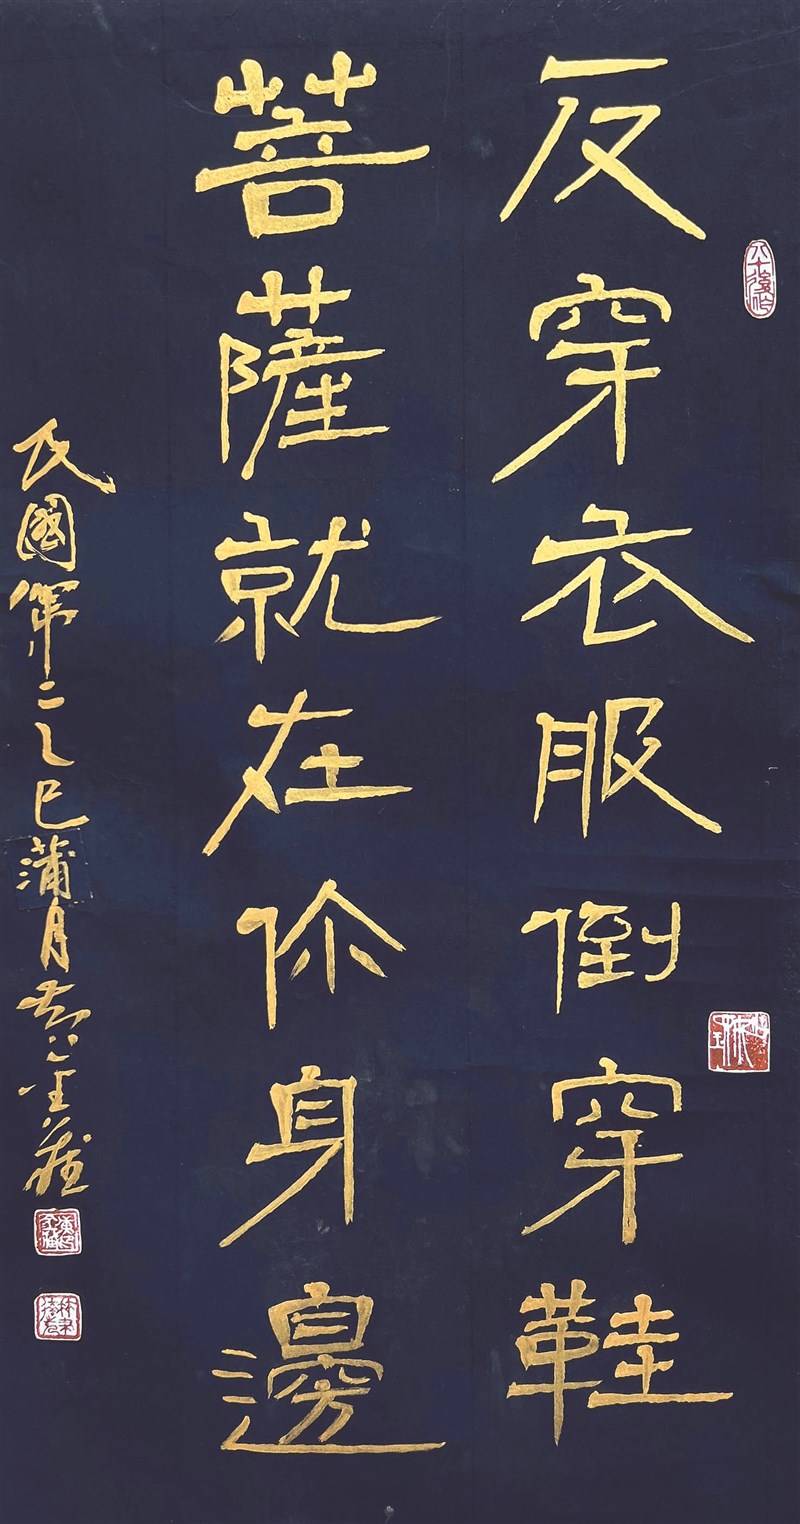 反穿衣服倒穿鞋
菩薩就在你身邊
民國第二乙巳蒲月